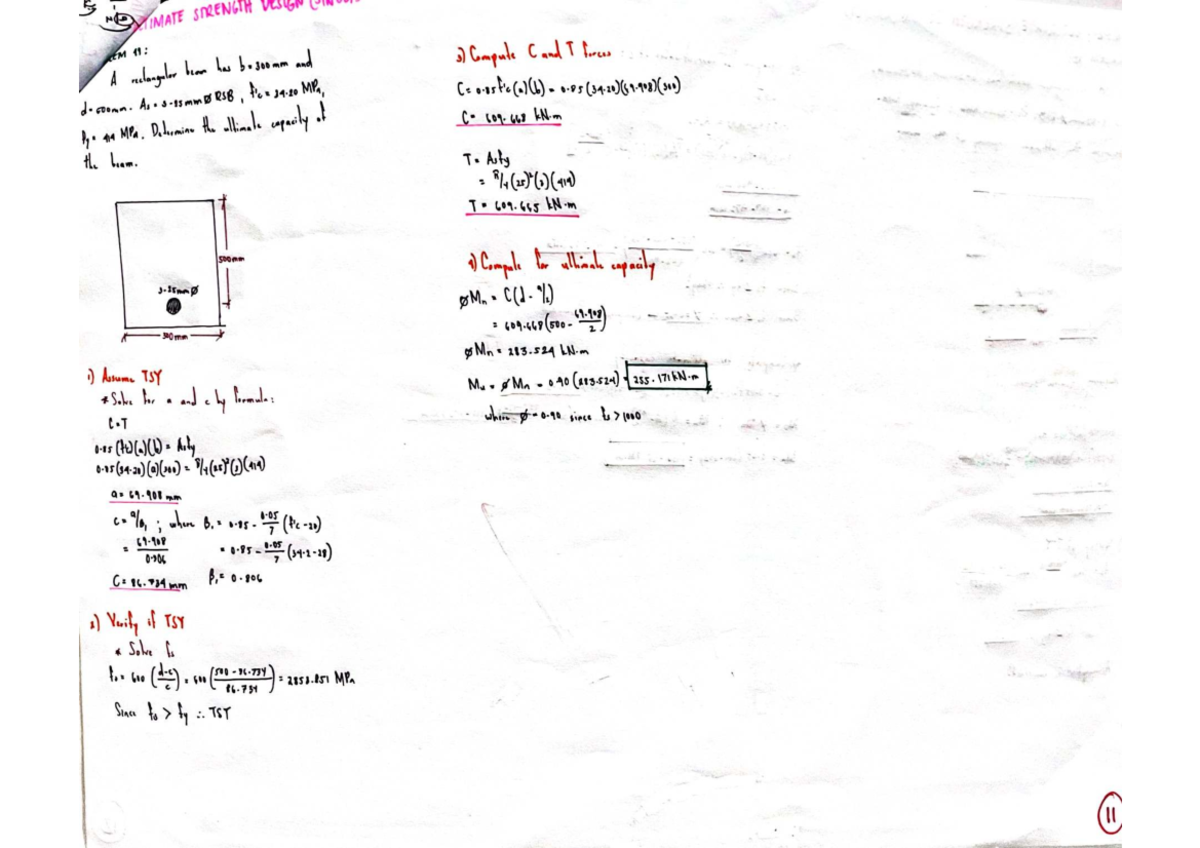 TIMATE STRENGTH DESIGN
A rectangular beam has b = 300 mm and
d = 500mm. As = 3-25mmØ RSB, f'c = 34.20 MPa,
fy = 414 MPa. Determine the ultimate capacity of
the beam.
500mm
3-25mmØ
300mm
1) Assume TSY
* Solve for a and c by formula:
C=T
0.85 (f'c)(a)(b) = Asfy
0.85(34.20)(a)(300) = π/4(25)²(3)(414)
a = 69.908 mm
c = a/β₁ ; where β₁ = 0.85 - 0.05/7 (f'c - 28)
= 69.908/0.806 = 0.85 - 0.05/7 (34.2 - 28)
C = 86.734 mm β₁ = 0.806
2) Verify if TSY
* Solve fs
fs = 600 (d-c/c) = 600 (500 - 86.734/86.734) = 2858.851 MPa
Since fs > fy ∴ TSY
3) Compute C and T forces
C = 0.85f'c(a)(b) = 0.85(34.20)(69.908)(300)
C = 609.668 kN.m
T = Asfy
= π/4(25)²(3)(414)
T = 609.665 kN.m
4) Compute for ultimate capacity
ØMn = C(d - a/2)
= 609.668(500 - 69.908/2)
ØMn = 283.524 kN.m
Mu = ØMn = 0.90 (283.524) = 255.171 kN.m
where Ø = 0.90 since fs > 1000
11